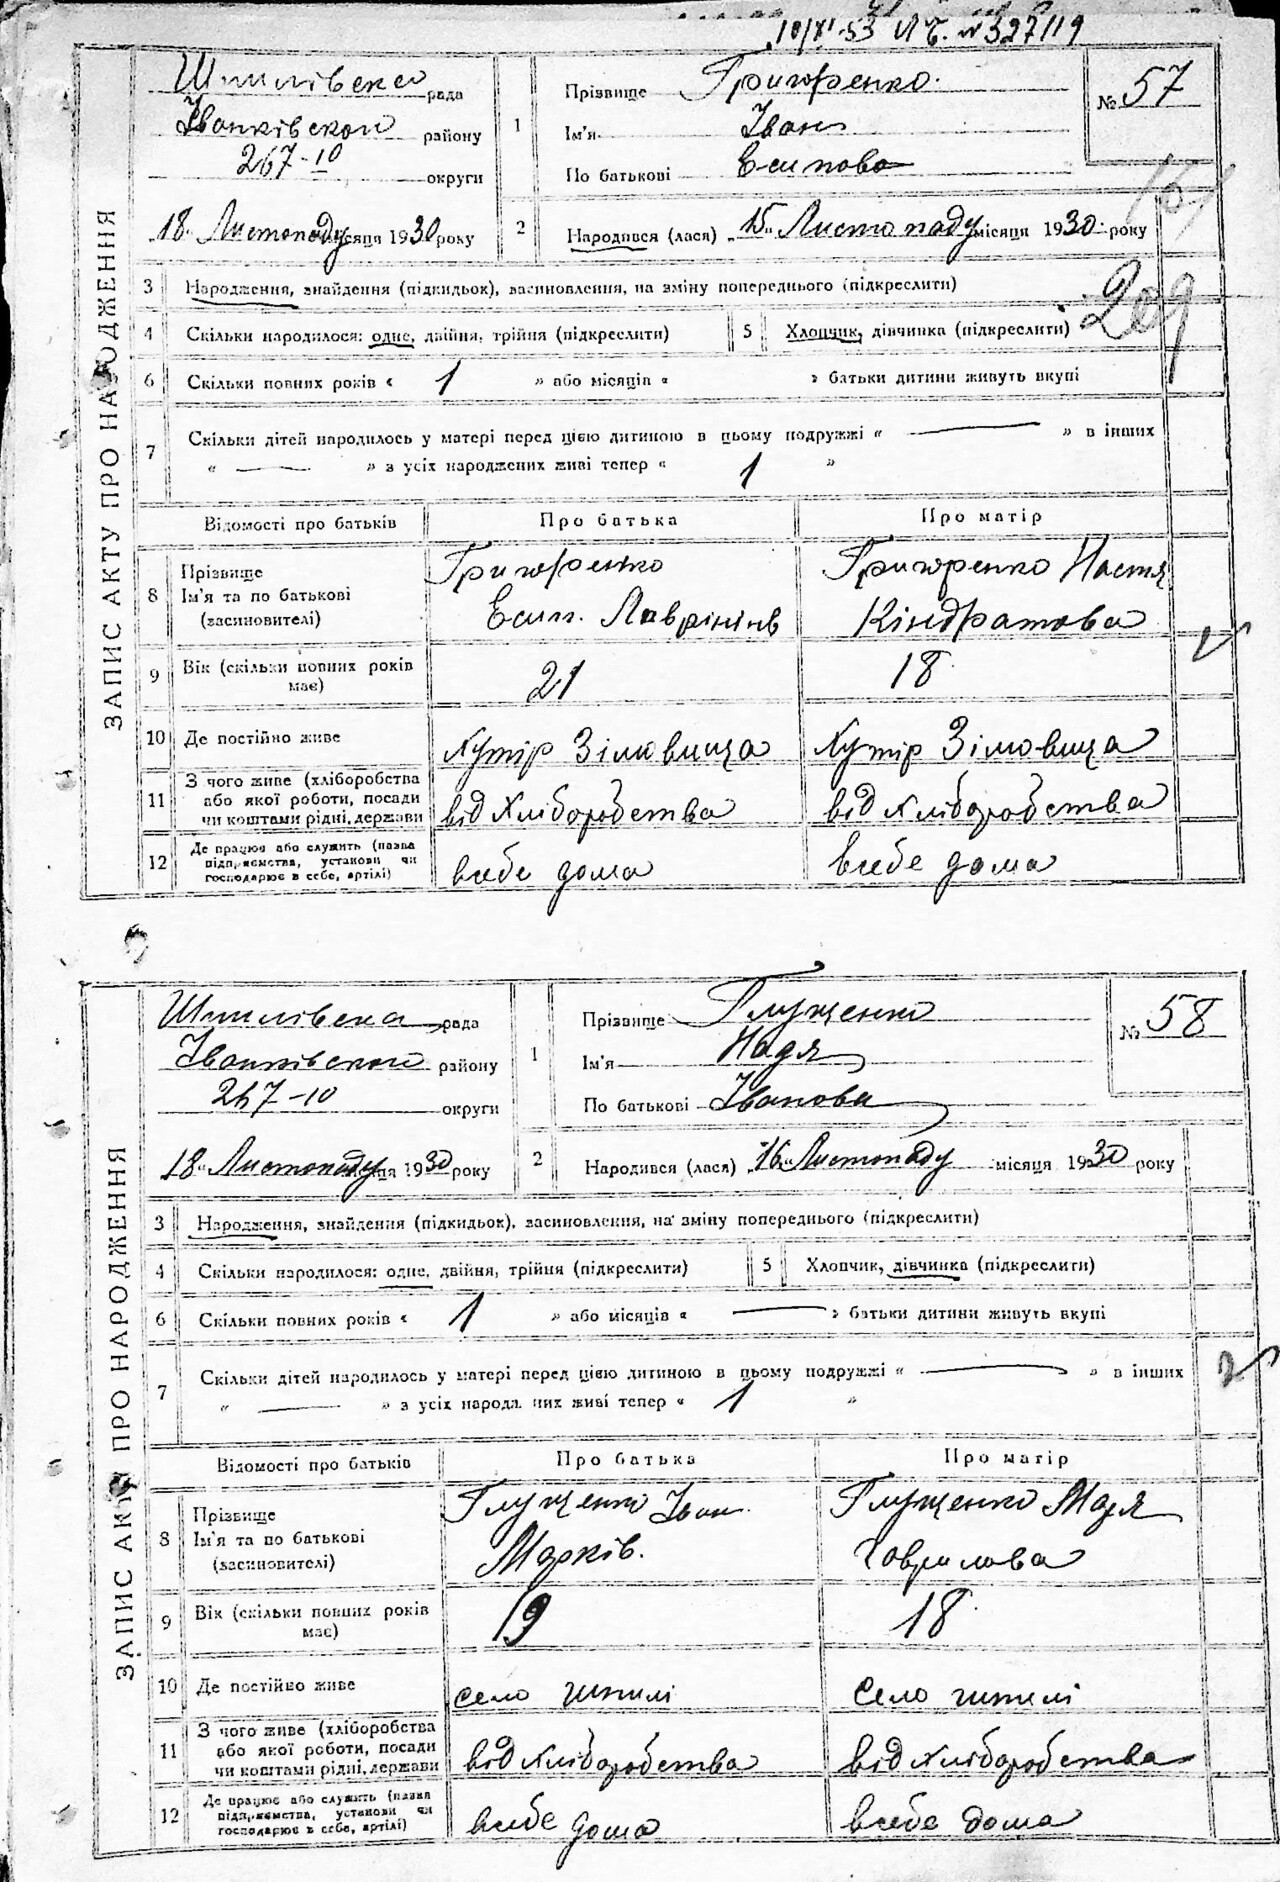 10/XI-53 ЛБ. № 327119
ЗАПИС АКТУ ПРО НАРОДЖЕННЯ
Шпилівска рада
Іванківской району
267-10 округи
„18“ Листопаду місяця 1930 року
1
Прізвище Григоренко
Ім'я Іван
По батькові Есипова
№ 57
2 Народився (лася) „15“ Листопаду місяця 1930 року
3 Народження, знайдення (підкидьок), засиновлення, на зміну попереднього (підкреслити)
209
4 Скільки народилося: одне, двійня, трійня (підкреслити) 5 Хлопчик, дівчинка (підкреслити)
6 Скільки повних років « 1 » або місяців « » батьки дитини живуть вкупі
7 Скільки дітей народилось у матері перед цією дитиною в цьому подружжі « — » в інших
« — » з усіх народжених живі тепер « 1 »
Відомості про батьків Про батька Про матір
8 Прізвище Ім'я та по батькові (засиновителі)
Григоренко Григоренко Настя
Есип. Лаврінів Кіндратова
9 Вік (скільки повних років має) 21 18
10 Де постійно живе Хутір Зімовища Хутір Зімовища
11 З чого живе (хліборобства або якої роботи, посади чи коштами рідні, держави від хліборобства від хліборобства
12 Де працює або служить (назва підприємства, установи чи господарює в себе, артілі) всебе дома всебе дома
ЗАПИС АКТУ ПРО НАРОДЖЕННЯ
Шпилівска рада
Іванківской району
267-10 округи
18“ Листопаду місяця 1930 року
1
Прізвище Глущенко
Ім'я Надя
По батькові Іванова
№ 58
2 Народився (лася) „16“ Листопаду місяця 1930 року
3 Народження, знайдення (підкидьок), засиновлення, на зміну попереднього (підкреслити)
4 Скільки народилося: одне, двійня, трійня (підкреслити) 5 Хлопчик, дівчинка (підкреслити)
6 Скільки повних років « 1 » або місяців « — » батьки дитини живуть вкупі
7 Скільки дітей народилось у матері перед цією дитиною в цьому подружжі « — » в інших
« — » з усіх народж них живі тепер « 1 »
Відомості про батьків Про батька Про матір
8 Прізвище Ім'я та по батькові (засиновителі)
Глущенко Іван Глущенко Марія
Марків. Гаврилова
9 Вік (скільки повних років має) 19 18
10 Де постійно живе село шпилі село шпилі
11 З чого живе (хліборобства або якої роботи, посади чи коштами рідні, держави від хліборобства від хліборобства
12 Де працює або служить (назва підприємства, установи чи господарює в себе, артілі) всебе дома всебе дома